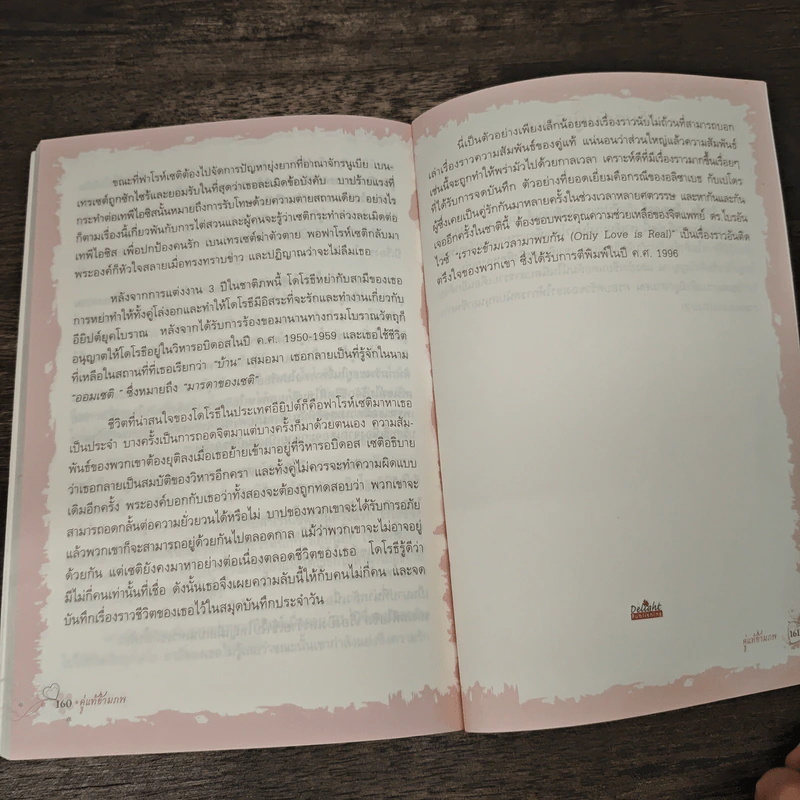 ขณะที่ฟาโรห์เซติต้องไปจัดการปัญหายุ่งยากที่อาณาจักรนูเบีย เบน-
เทรเซต์ถูกซักไซร้และยอมรับในที่สุดว่าเธอละเมิดข้อบังคับ บาปร้ายแรงที่
กระทำต่อเทพีไอซิสนั้นหมายถึงการรับโทษด้วยความตายสถานเดียว อย่างไร
ก็ตามเรื่องนี้เกี่ยวพันกับการไต่สวนและผู้คนจะรู้ว่าเซติกระทำล่วงละเมิดต่อ
เทพีไอซิส เพื่อปกป้องคนรัก เบนเทรเซต์ฆ่าตัวตาย พอฟาโรห์เซติกลับมา
พระองค์ก็หัวใจสลายเมื่อทรงทราบข่าว และปฏิญาณว่าจะไม่ลืมเธอ
หลังจากการแต่งงาน 3 ปีในชาติภพนี้ โดโรธีหย่ากับสามีของเธอ
การหย่าทำให้ทั้งคู่โล่งอกและทำให้โดโรธีมีอิสระที่จะรักและทำงานเกี่ยวกับ
อียิปต์ยุคโบราณ หลังจากได้รับการร้องขอมานานทางกรมโบราณวัตถุก็
อนุญาตให้โดโรธีอยู่ในวิหารอบิดอสในปี ค.ศ. 1950-1959 และเธอใช้ชีวิต
ที่เหลือในสถานที่ที่เธอเรียกว่า “บ้าน” เสมอมา เธอกลายเป็นที่รู้จักในนาม
“ออมเซติ ” ซึ่งหมายถึง “มารดาของเซติ”
ชีวิตที่น่าสนใจของโดโรธีในประเทศอียิปต์ก็คือฟาโรห์เซติมาหาเธอ
เป็นประจำ บางครั้งเป็นการถอดจิตมาแต่บางครั้งก็มาด้วยตนเอง ความสัม-
พันธ์ของพวกเขาต้องยุติลงเมื่อเธอย้ายเข้ามาอยู่ที่วิหารอบิดอส เซติอธิบาย
ว่าเธอกลายเป็นสมบัติของวิหารอีกครา และทั้งคู่ไม่ควรจะทำความผิดแบบ
เดิมอีกครั้ง พระองค์บอกกับเธอว่าทั้งสองจะต้องถูกทดสอบว่า พวกเขาจะ
สามารถอดกลั้นต่อความยั่วยวนได้หรือไม่ บาปของพวกเขาจะได้รับการอภัย
แล้วพวกเขาก็จะสามารถอยู่ด้วยกันไปตลอดกาล แม้ว่าพวกเขาจะไม่อาจอยู่
ด้วยกัน แต่เซติยังคงมาหาอย่างต่อเนื่องตลอดชีวิตของเธอ โดโรธีรู้ดีว่า
มีไม่กี่คนเท่านั้นที่เชื่อ ดังนั้นเธอจึงเผยความลับนี้ให้กับคนไม่กี่คน และจด
บันทึกเรื่องราวชีวิตของเธอไว้ในสมุดบันทึกประจำวัน
160 คู่แท้ข้ามภพ
นี่เป็นตัวอย่างเพียงเล็กน้อยของเรื่องราวนับไม่ถ้วนที่สามารถบอก
เล่าเรื่องราวความสัมพันธ์ของคู่แท้ แน่นอนว่าส่วนใหญ่แล้วความสัมพันธ์
เช่นนี้จะถูกทำให้พร่ามัวไปด้วยกาลเวลา เคราะห์ดีที่มีเรื่องราวมากขึ้นเรื่อยๆ
ที่ได้รับการจดบันทึก ตัวอย่างที่ยอดเยี่ยมคือกรณีของอลิซาเบธ กับเปโดร
ผู้ซึ่งเคยเป็นคู่รักกันมาหลายครั้งในช่วงเวลาหลายศตวรรษ และหากันและกัน
เจออีกครั้งในชาตินี้ ต้องขอบพระคุณความช่วยเหลือของจิตแพทย์ ดร.ไบรอัน
ไวซ์ “เราจะข้ามเวลามาพบกัน (Only Love is Real)” เป็นเรื่องราวอันติด
ตรึงใจของพวกเขา ซึ่งได้รับการตีพิมพ์ในปี ค.ศ. 1996
Delight
Publishing
คู่แท้ข้ามภพ 161